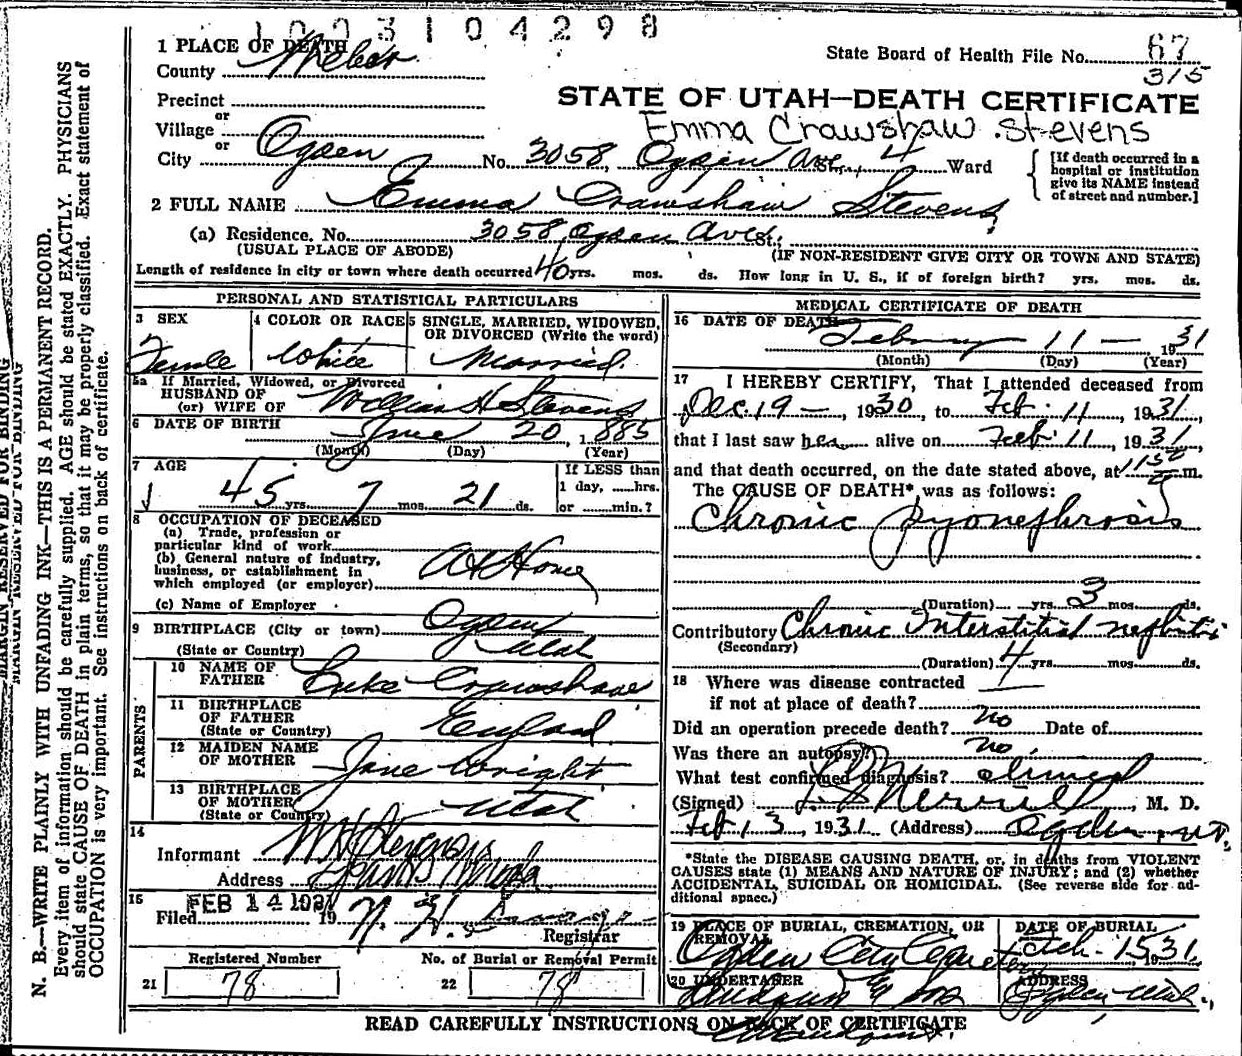 1003104298
1 PLACE OF DEATH
County Weber
State Board of Health File No. 67
315
Precinct
or
Village
or
STATE OF UTAH—DEATH CERTIFICATE
Emma Crawshaw Stevens
City Ogden No. 3058, Ogden Ave., 4 Ward
[If death occurred in a hospital or institution give its NAME instead of street and number.]
2 FULL NAME Emma Crawshaw Stevens
(a) Residence. No. 3058 Ogden Ave St.
(USUAL PLACE OF ABODE) (IF NON-RESIDENT GIVE CITY OR TOWN AND STATE)
Length of residence in city or town where death occurred 40 yrs. mos. ds. How long in U. S., if of foreign birth? yrs. mos. ds.
PERSONAL AND STATISTICAL PARTICULARS
3 SEX 4 COLOR OR RACE 5 SINGLE, MARRIED, WIDOWED, OR DIVORCED (Write the word)
Female White Married
5a If Married, Widowed, or Divorced
HUSBAND OF
(or) WIFE OF William H Stevens
6 DATE OF BIRTH June 20, 1885
(Month) (Day) (Year)
7 AGE If LESS than
1 day, ......hrs.
45 yrs. 7 mos. 21 ds. or ......min.?
8 OCCUPATION OF DECEASED
(a) Trade, profession or
particular kind of work
(b) General nature of industry,
business, or establishment in
which employed (or employer) At Home
(c) Name of Employer
9 BIRTHPLACE (City or town) Ogden
(State or Country) Utah
PARENTS
10 NAME OF FATHER Luke Crawshaw
11 BIRTHPLACE OF FATHER (State or Country) England
12 MAIDEN NAME OF MOTHER Jane Wright
13 BIRTHPLACE OF MOTHER (State or Country) Utah
14
Informant W H Stevens
Address
15
Filed FEB 14 1931 19 N. H.
Registrar
Registered Number No. of Burial or Removal Permit
21 78 22 78
MEDICAL CERTIFICATE OF DEATH
16 DATE OF DEATH February 11 — 1931
(Month) (Day) (Year)
17 I HEREBY CERTIFY, That I attended deceased from
Dec. 19 —, 1930, to Feb. 11, 1931,
that I last saw her alive on Feb. 11, 1931,
and that death occurred, on the date stated above, at m.
The CAUSE OF DEATH* was as follows:
Chronic pyonephrosis
(Duration) yrs. 3 mos. ds.
Contributory Chronic Interstitial nephritis
(Secondary)
(Duration) 4 yrs. mos. ds.
18 Where was disease contracted
if not at place of death? —
Did an operation precede death? no Date of
Was there an autopsy? no.
What test confirmed diagnosis? clinical
(Signed) Merrill, M. D.
Feb 13, 1931 (Address) Ogden, Ut.
*State the DISEASE CAUSING DEATH, or, in deaths from VIOLENT
CAUSES state (1) MEANS AND NATURE OF INJURY; and (2) whether
ACCIDENTAL, SUICIDAL OR HOMICIDAL. (See reverse side for ad-
ditional space.)
19 PLACE OF BURIAL, CREMATION, OR REMOVAL DATE OF BURIAL
Ogden City Cemetery Feb. 15 1931
20 UNDERTAKER ADDRESS
Lindquist & Sons Ogden, Utah
READ CAREFULLY INSTRUCTIONS ON BACK OF CERTIFICATE
MARGIN RESERVED FOR BINDING
N. B.—WRITE PLAINLY WITH UNFADING INK—THIS IS A PERMANENT RECORD.
Every item of information should be carefully supplied. AGE should be stated EXACTLY. PHYSICIANS
should state CAUSE OF DEATH in plain terms, so that it may be properly classified. Exact statement of
OCCUPATION is very important. See instructions on back of certificate.